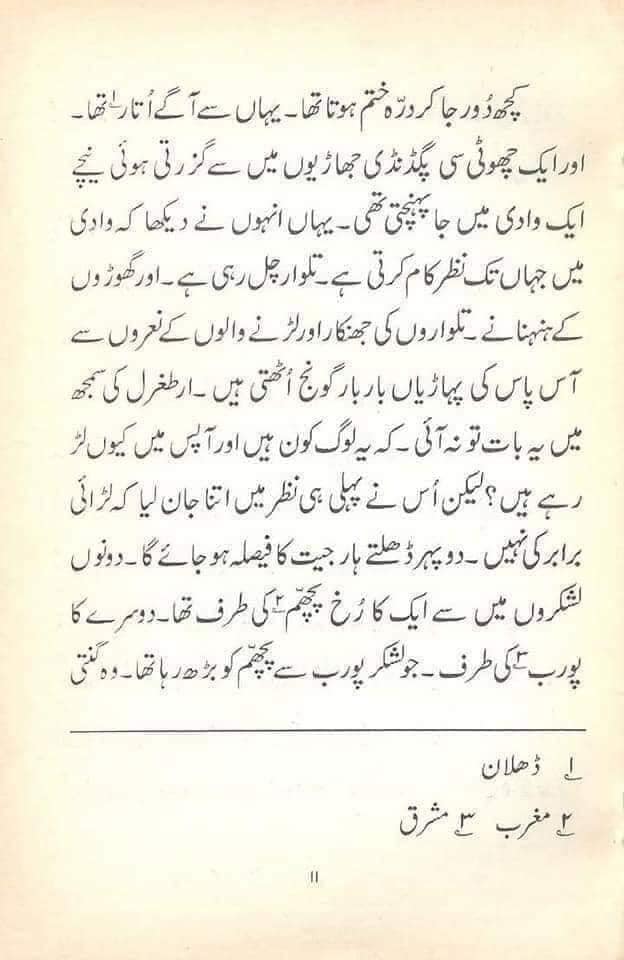 کچھ دُور جا کر درّہ ختم ہوتا تھا۔ یہاں سے آگے اُتار۱؂ تھا۔
اور ایک چھوٹی سی پگڈنڈی جھاڑیوں میں سے گزرتی ہوئی نیچے
ایک وادی میں جا پہنچتی تھی۔ یہاں انہوں نے دیکھا کہ وادی
میں جہاں تک نظر کام کرتی ہے۔ تلوار چل رہی ہے۔ اور گھوڑوں
کے ہنہنانے۔ تلواروں کی جھنکار اور لڑنے والوں کے نعروں سے
آس پاس کی پہاڑیاں بار بار گونج اُٹھتی ہیں۔ ارطغرل کی سمجھ
میں یہ بات تو نہ آئی۔ کہ یہ لوگ کون ہیں اور آپس میں کیوں لڑ
رہے ہیں؟ لیکن اُس نے پہلی ہی نظر میں اتنا جان لیا کہ لڑائی
برابر کی نہیں۔ دوپہر ڈھلتے ہار جیت کا فیصلہ ہو جائے گا۔ دونوں
لشکروں میں سے ایک کا رُخ پچھّم۲؂ کی طرف تھا۔ دوسرے کا
پورب۳؂ کی طرف۔ جو لشکر پورب سے پچھّم کو بڑھ رہا تھا۔ وہ گنتی
۱؂ ڈھلان
۲؂ مغرب ۳؂ مشرق
۱۱